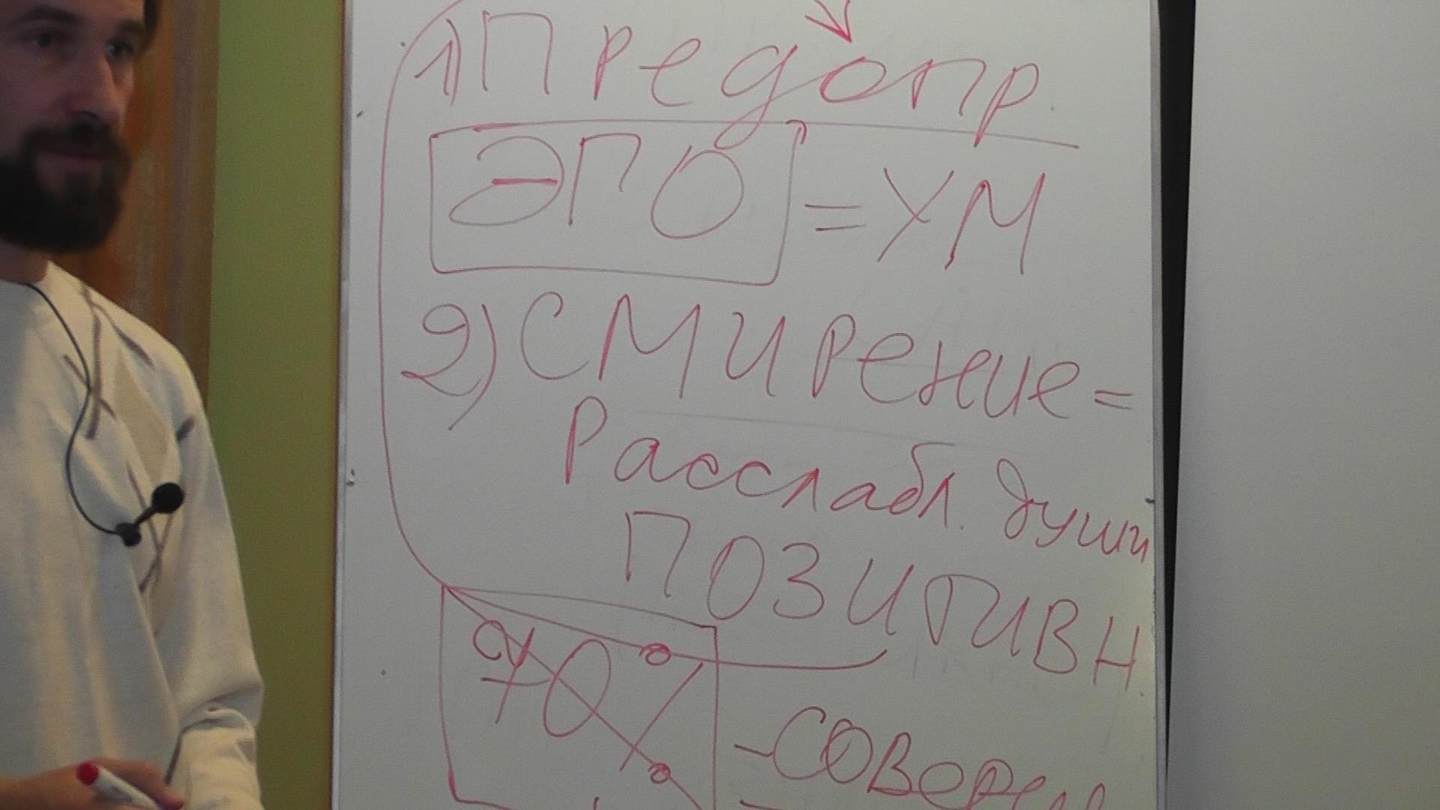 1) Предопр.
ЭГО = УМ
2) СМИРЕНИЕ =
Расслабл. души
ПОЗИТИВН.
70%